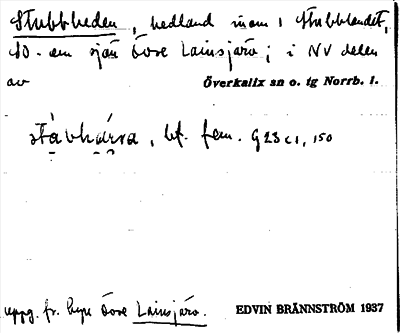 Stubbheden, hedland inom i Stubblandet,
NO. om sjön Övre Lainsjärv; i NV delen
av Överkalix sn o. tg Norrb. l.
stàbhḁ́rra, bf. fem. G23c1, 150
uppg. fr. byn Övre Lainsjärv. EDVIN BRÄNNSTRÖM 1937